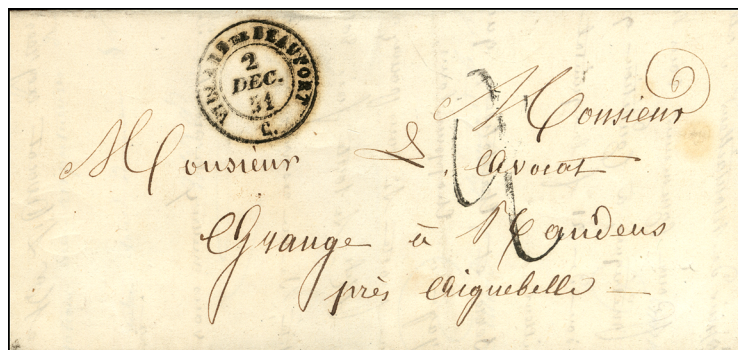 VILLARD DE BEAUFORT
2
DEC.
51
C.
Monsieur
Monsieur &. Avocat
Grange à Randens
près Aiguebelle